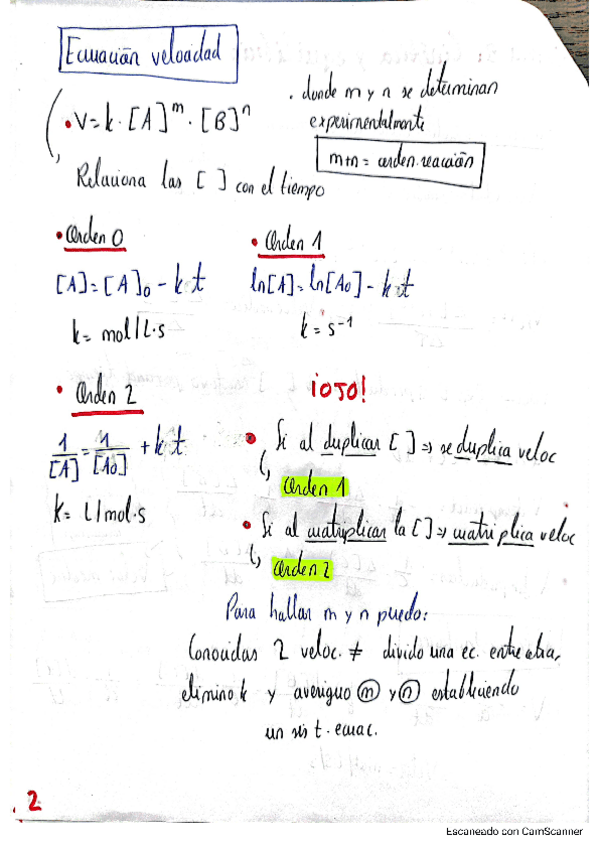 Ecuación velocidad
• V = k · [A]^m · [B]^n
. donde m y n se determinan
experimentalmente
m+n = orden reacción
Relaciona las [ ] con el tiempo
• Orden 0
[A] = [A]₀ - k t
k = mol/L·s
• Orden 1
ln[A] = ln[A₀] - k·t
k = s⁻¹
• Orden 2
1/[A] = 1/[A₀] + k t
k = L/mol·s
¡OJO!
• Si al duplicar [ ] ⇒ se duplica veloc
Orden 1
• Si al cuatriplicar la [ ] ⇒ cuatriplica veloc
Orden 2
Para hallar m y n puedo:
Conocidas 2 veloc. ≠ divido una ec. entre otra,
elimino k y averiguo m y n estableciendo
un sist. ecuac.
2
Escaneado con CamScanner